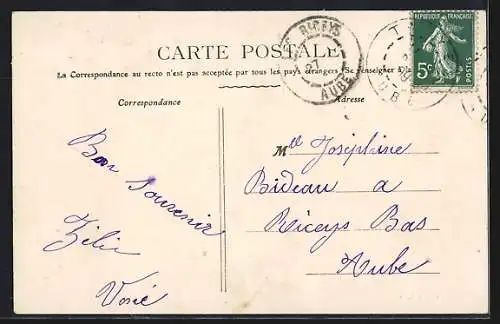 CARTE POSTALE
La Correspondance au recto n'est pas acceptée par tous les pays étrangers. Se renseigner à la
Correspondance
Adresse
RICEYS
27
AUBE
REPUBLIQUE FRANÇAISE
5c
POSTES
Bon Souvenir
Mlle Joséphine
Bideau a
Riceys Bas
Aube